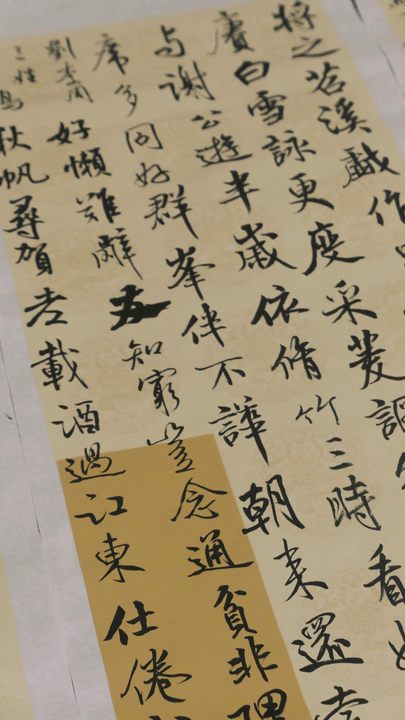 將之苕溪戲作
賡白雪詠更度采菱調
与謝公遊半歲依脩竹三時看
席多同好群峯伴不譁朝来還
劉李周
三姓
好懶難辭友知窮豈念通貧非理
秋帆尋賀老載酒過江東仕倦